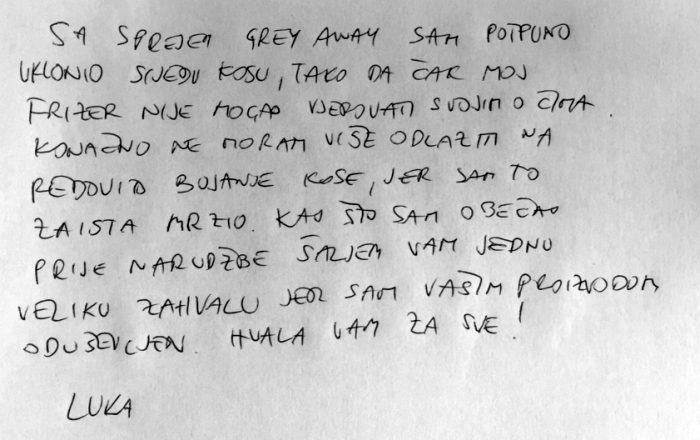 SA SPREJEM GREY AWAY SAM POTPUNO
UKLONIO SIJEDU KOSU, TAKO DA ČAK MOJ
FRIZER NIJE MOGAO VJEROVATI SVOJIM OČIMA.
KONAČNO NE MORAM VIŠE ODLAZITI NA
REDOVITO BOJANJE KOSE, JER SAM TO
ZAISTA MRZIO. KAO ŠTO SAM OBEĆAO
PRIJE NARUDŽBE ŠALJEM VAM JEDNU
VELIKU ZAHVALU JER SAM VAŠIM PROIZVODOM
ODUŠEVLJEN. HVALA VAM ZA SVE!
LUKA